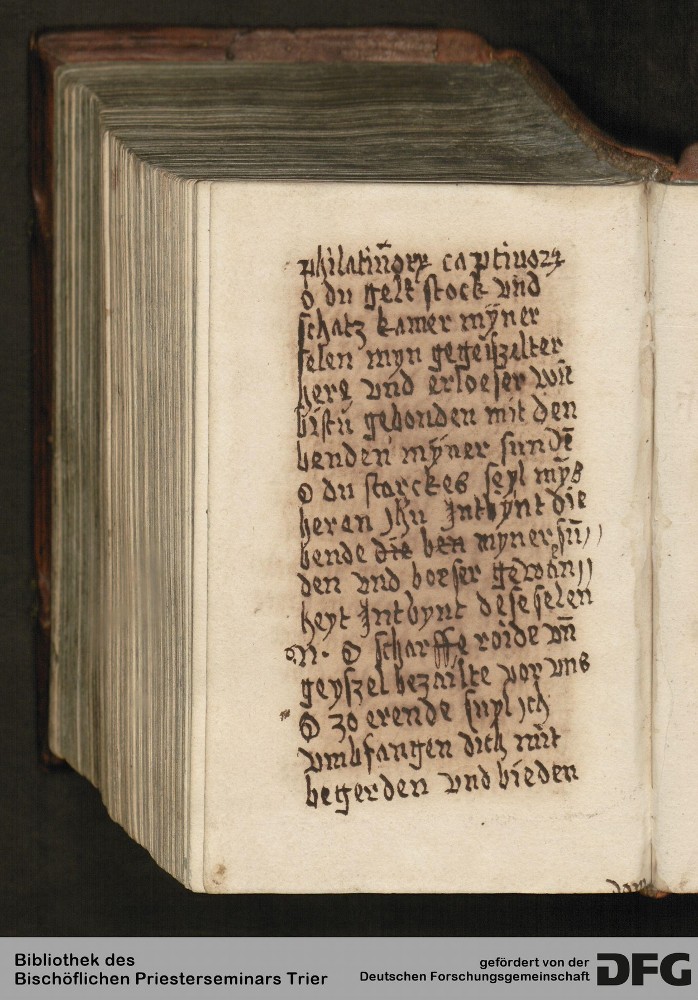 philatiūorꝝ captiuorꝝ
o du gelt stock vnd
schatz kamer mÿner
selen myn gegeiszelter
here vnd erloeser wie
bistu gebonden mit den
benden mÿner sundē
O du starckes seyl mÿs
heren Jhu Intbÿnt die
bende die ben myner sū//
den vnd boeser gewan//
heyt Intbynt dese selen
N. O scharffe roide vn̄
geyszel bezailte vor vns
O zo erende suyl ich
vmbfangen dich mit
begerden vnd bieden
Bibliothek des
Bischöflichen Priesterseminars Trier
gefördert von der
Deutschen Forschungsgemeinschaft DFG